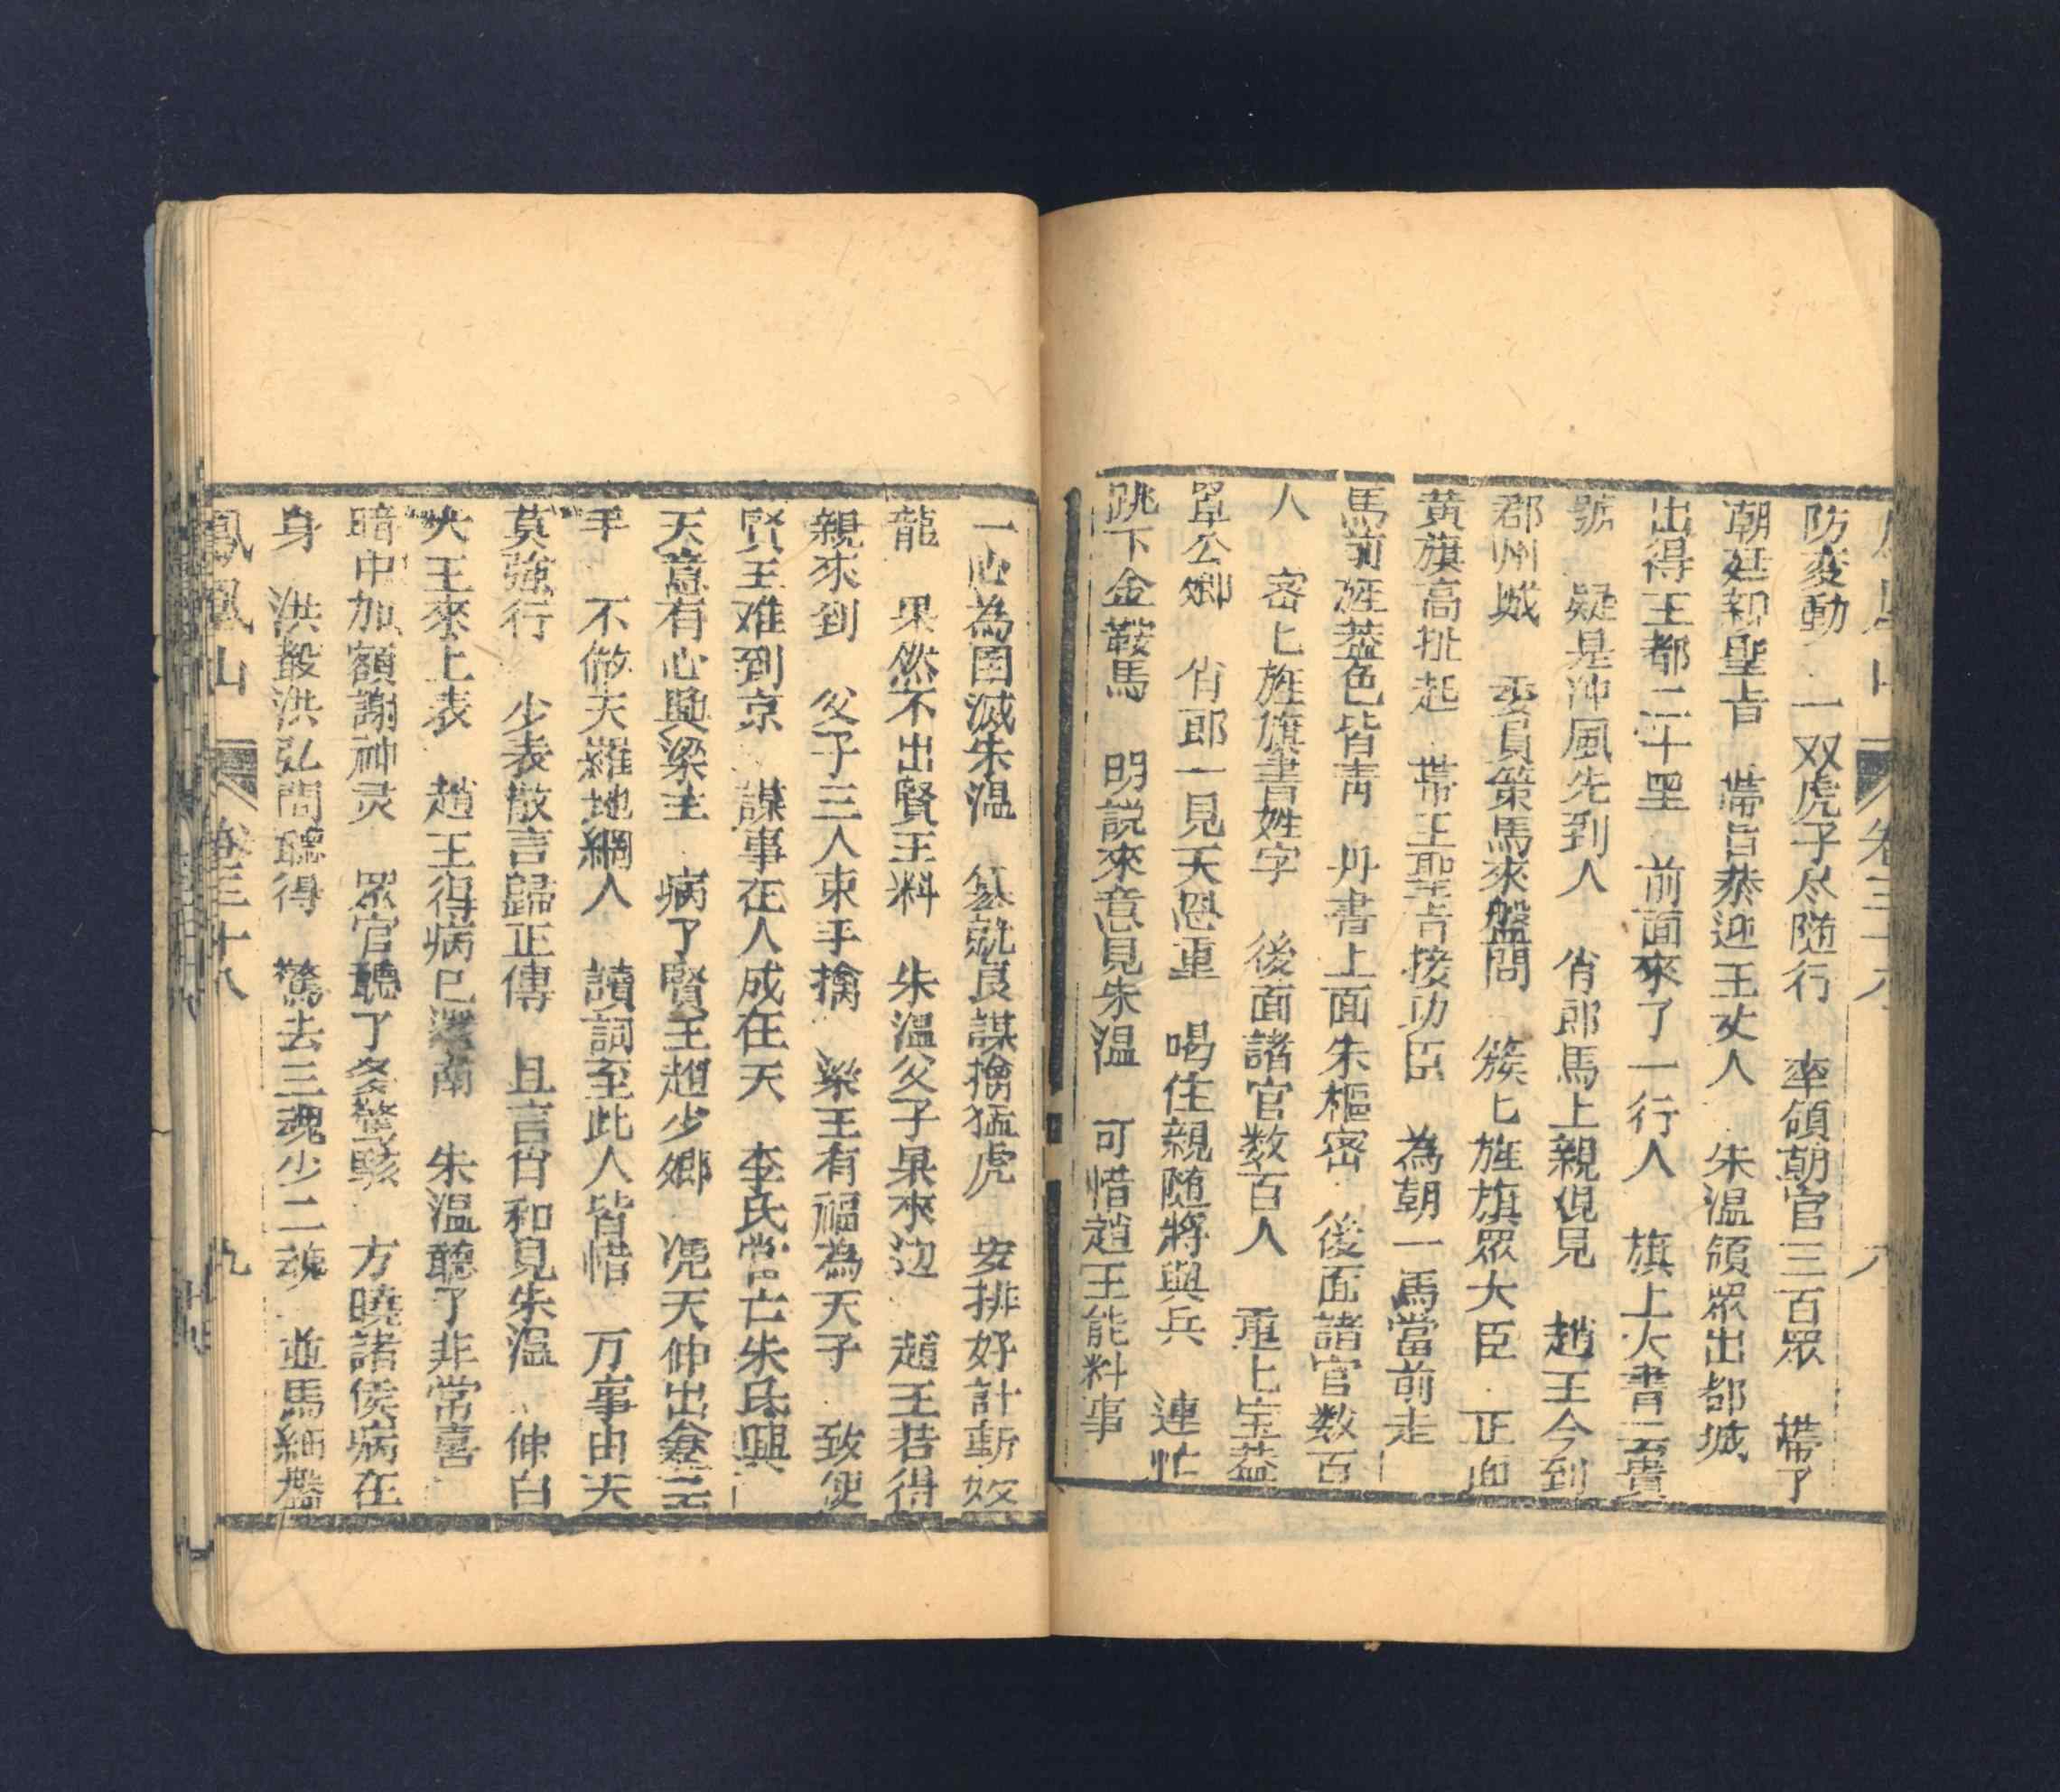 防変動　一双虎子尽随行　率領朝官三百眾　帶了
朝廷和聖旨　帶旨恭迎王丈人　朱溫領眾出都城
出得王都二十里　前面來了一行人　旗上大書云貴
號　疑是沖風先到人　肖郎馬上親見　趙王今到
郡州城　委員策馬來盤問　簇匕旌旗眾大臣　正面
黄旗高扯起　帶王聖旨接功臣　為朝一馬當前走
馬前旌蓋色皆青　丹書上面朱樞密　後面諸官数百
人　密匕旌旗書姓字　後面諸官数百人　重匕宝蓋
罩公卿　肖郎一見天恩重　喝住親随將與兵　連忙
跳下金鞍馬　明説來意見朱溫　可惜趙王能料事
一心為国滅朱溫　纂就良謀擒猛虎　安排好計斬妖
龍　果然不出賢王料　朱溫父子果來迎　趙王若得
親來到　父子三人束手擒　梁王有福為天子　致使
賢王难到京　謀事在人成在天　李氏當亡朱氏興
天意有心興梁主　病了賢王趙少卿　凭天伸出拿云
手　不做天羅地網人　讀詞至此人皆惜　万事由天
莫強行　少表散言歸正傳　且言肖和見朱溫　伸白
大王來上表　趙王得病已還南　朱溫聽了非常喜
暗中加額謝神灵　眾官聽了多驚駭　方曉諸侯病在
身　洪毅洪弘問聽得　驚去三魂少二魂　並馬細盤
鳳凰山　卷三十八　九